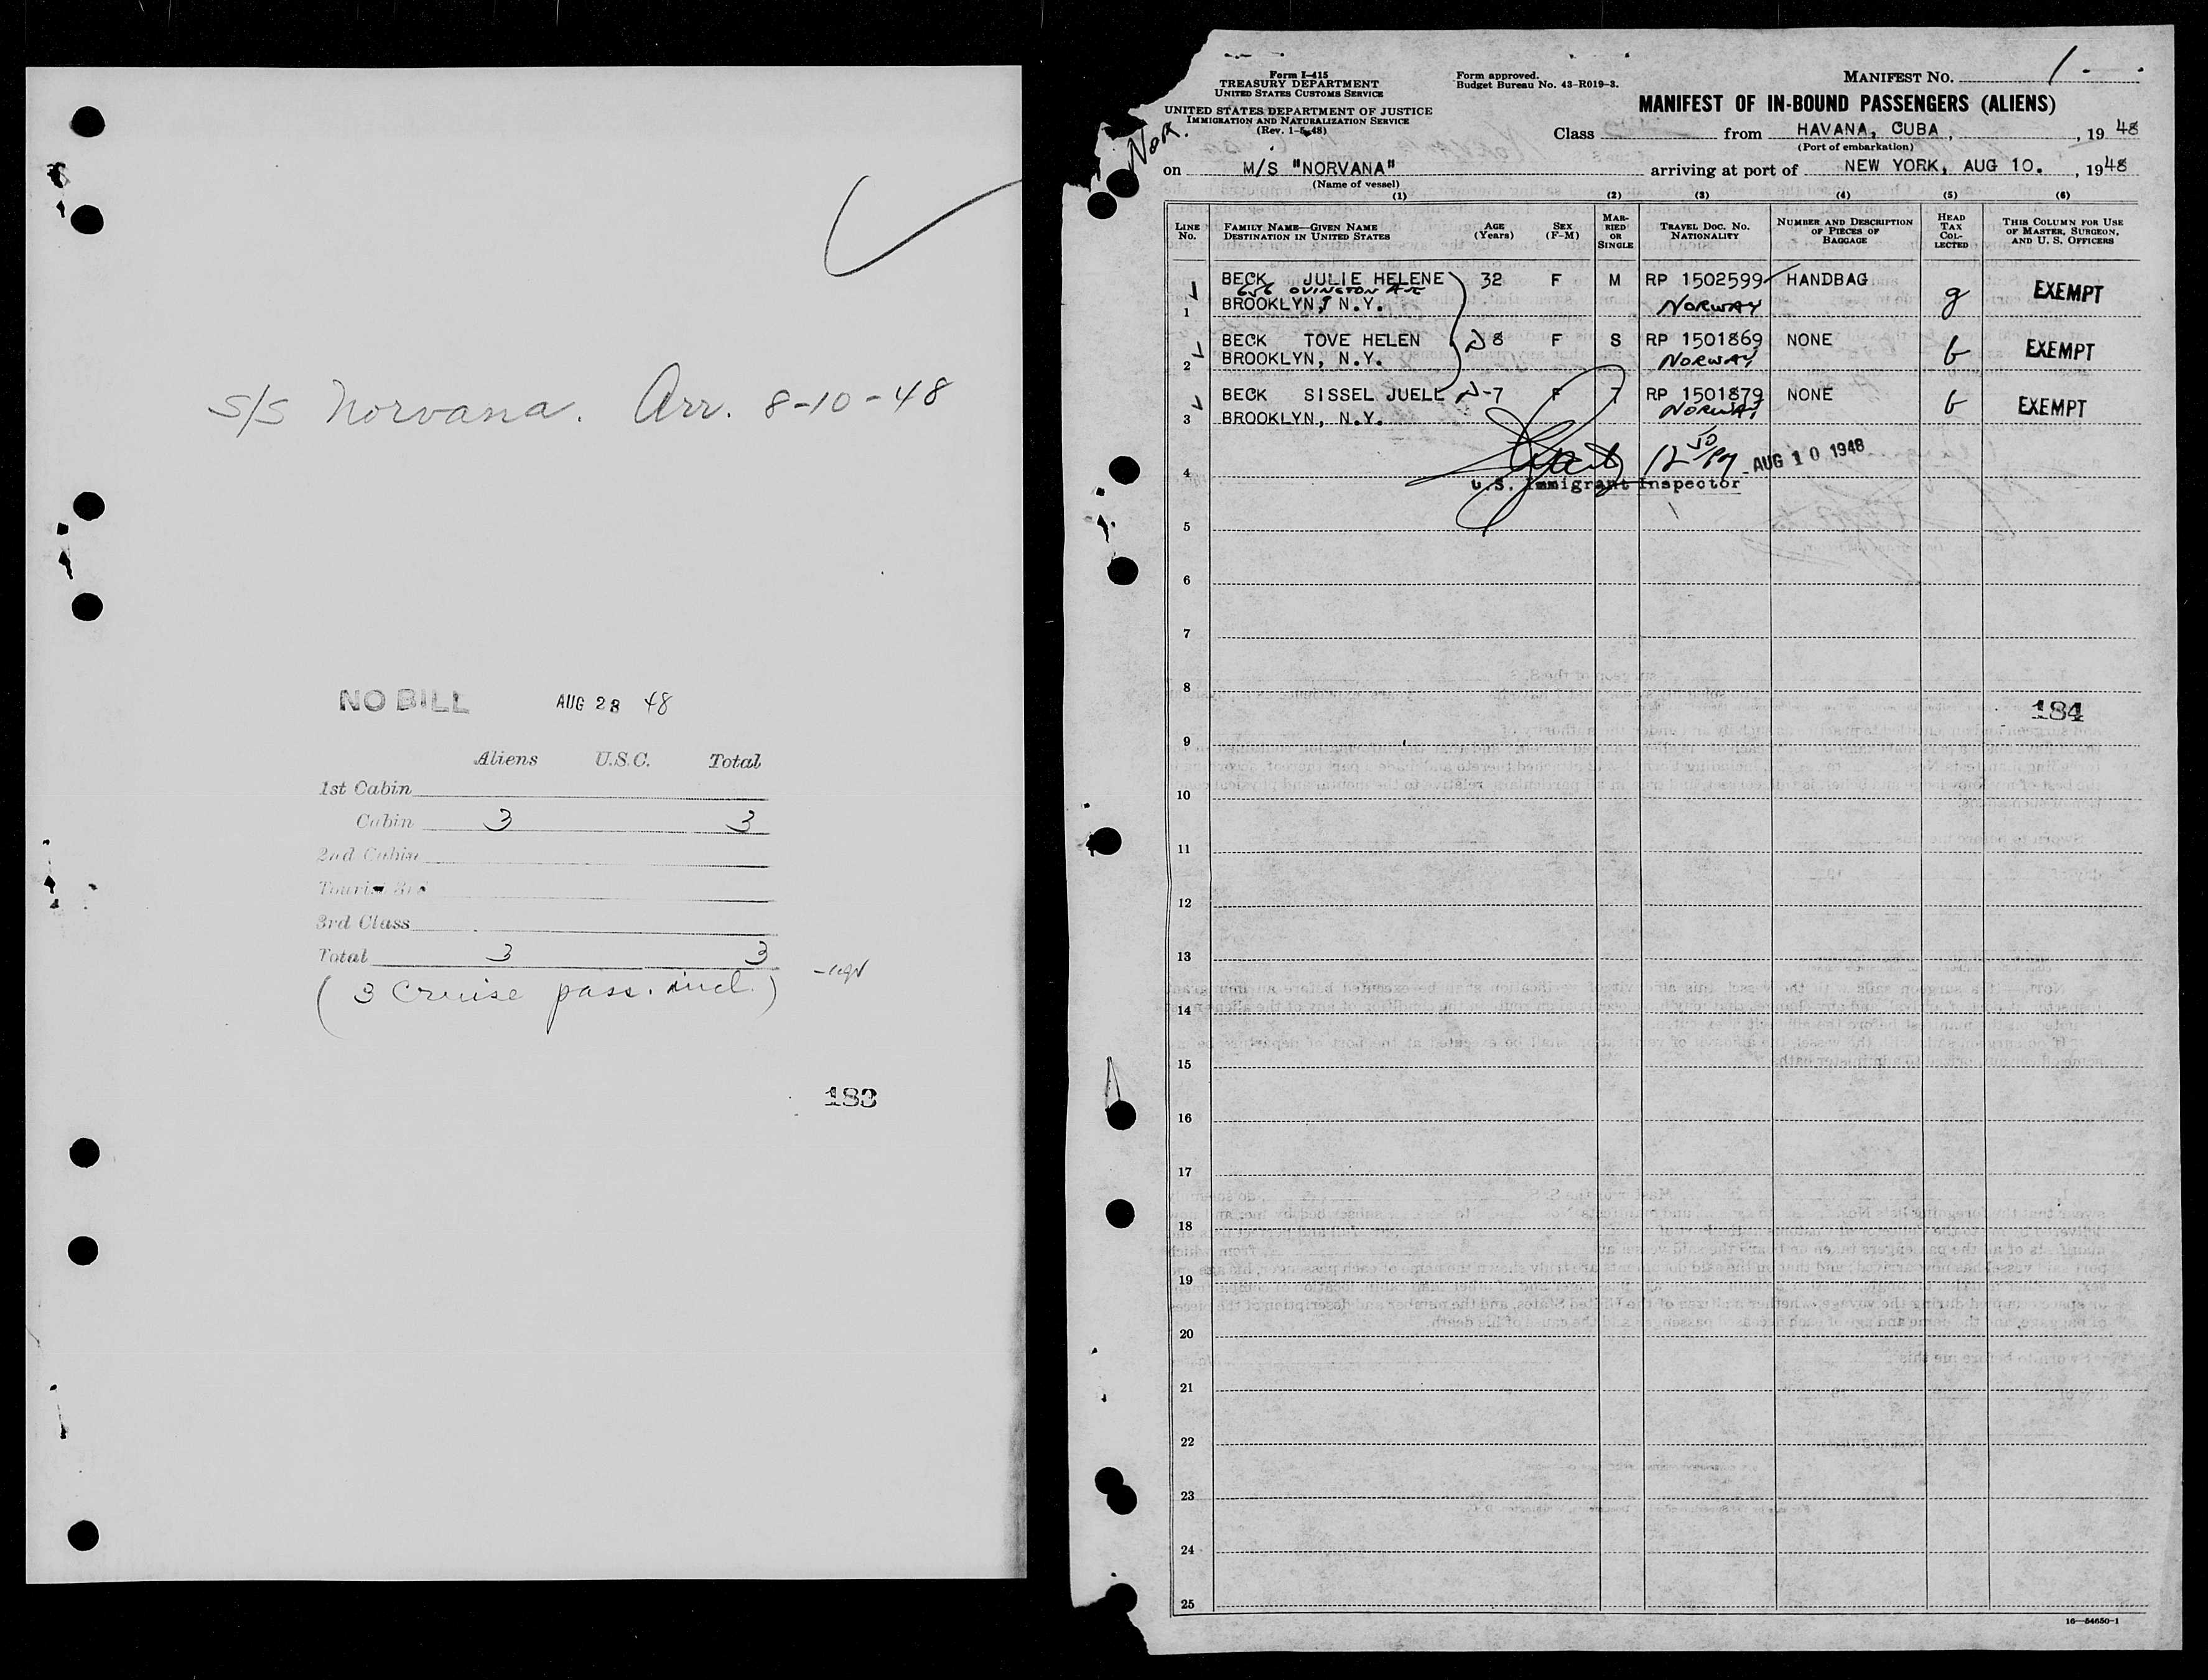 S/S Norvana. Arr. 8-10-48
NO BILL AUG 23 48
Aliens U.S.C. Total
1st Cabin
Cabin 3 3
2nd Cabin
Tourist 3rd
3rd Class
Total 3 3
(3 Cruise pass. incl.)
183
Form I-415
TREASURY DEPARTMENT
UNITED STATES CUSTOMS SERVICE
UNITED STATES DEPARTMENT OF JUSTICE
IMMIGRATION AND NATURALIZATION SERVICE
(Rev. 1-5-48)
Form approved.
Budget Bureau No. 43-R019-3.
MANIFEST NO. 1-
MANIFEST OF IN-BOUND PASSENGERS (ALIENS)
Nor.
Class from HAVANA, CUBA, , 1948
(Port of embarkation)
on M/S "NORVANA" arriving at port of NEW YORK, AUG 10. , 1948
(Name of vessel)
(1) (2) (3) (4) (5) (6)
LINE No. FAMILY NAME—GIVEN NAME DESTINATION IN UNITED STATES AGE (Years) SEX (F-M) MARRIED OR SINGLE TRAVEL DOC. NO. NATIONALITY NUMBER AND DESCRIPTION OF PIECES OF BAGGAGE HEAD TAX COLLECTED THIS COLUMN FOR USE OF MASTER, SURGEON, AND U. S. OFFICERS
BECK JULIE HELENE 32 F M RP 1502599 HANDBAG EXEMPT
656 OVINGTON AVE
1 BROOKLYN, N.Y. NORWAY
BECK TOVE HELEN 8 F S RP 1501869 NONE EXEMPT
2 BROOKLYN, N.Y. NORWAY
BECK SISSEL JUELL 7 F RP 1501879 NONE EXEMPT
3 BROOKLYN, N.Y. NORWAY
4 12 50 PM AUG 10 1948
U.S. Immigrant Inspector
5
6
7
8
184
9
10
11
12
13
14
15
16
17
18
19
20
21
22
23
24
25
16—54650-1